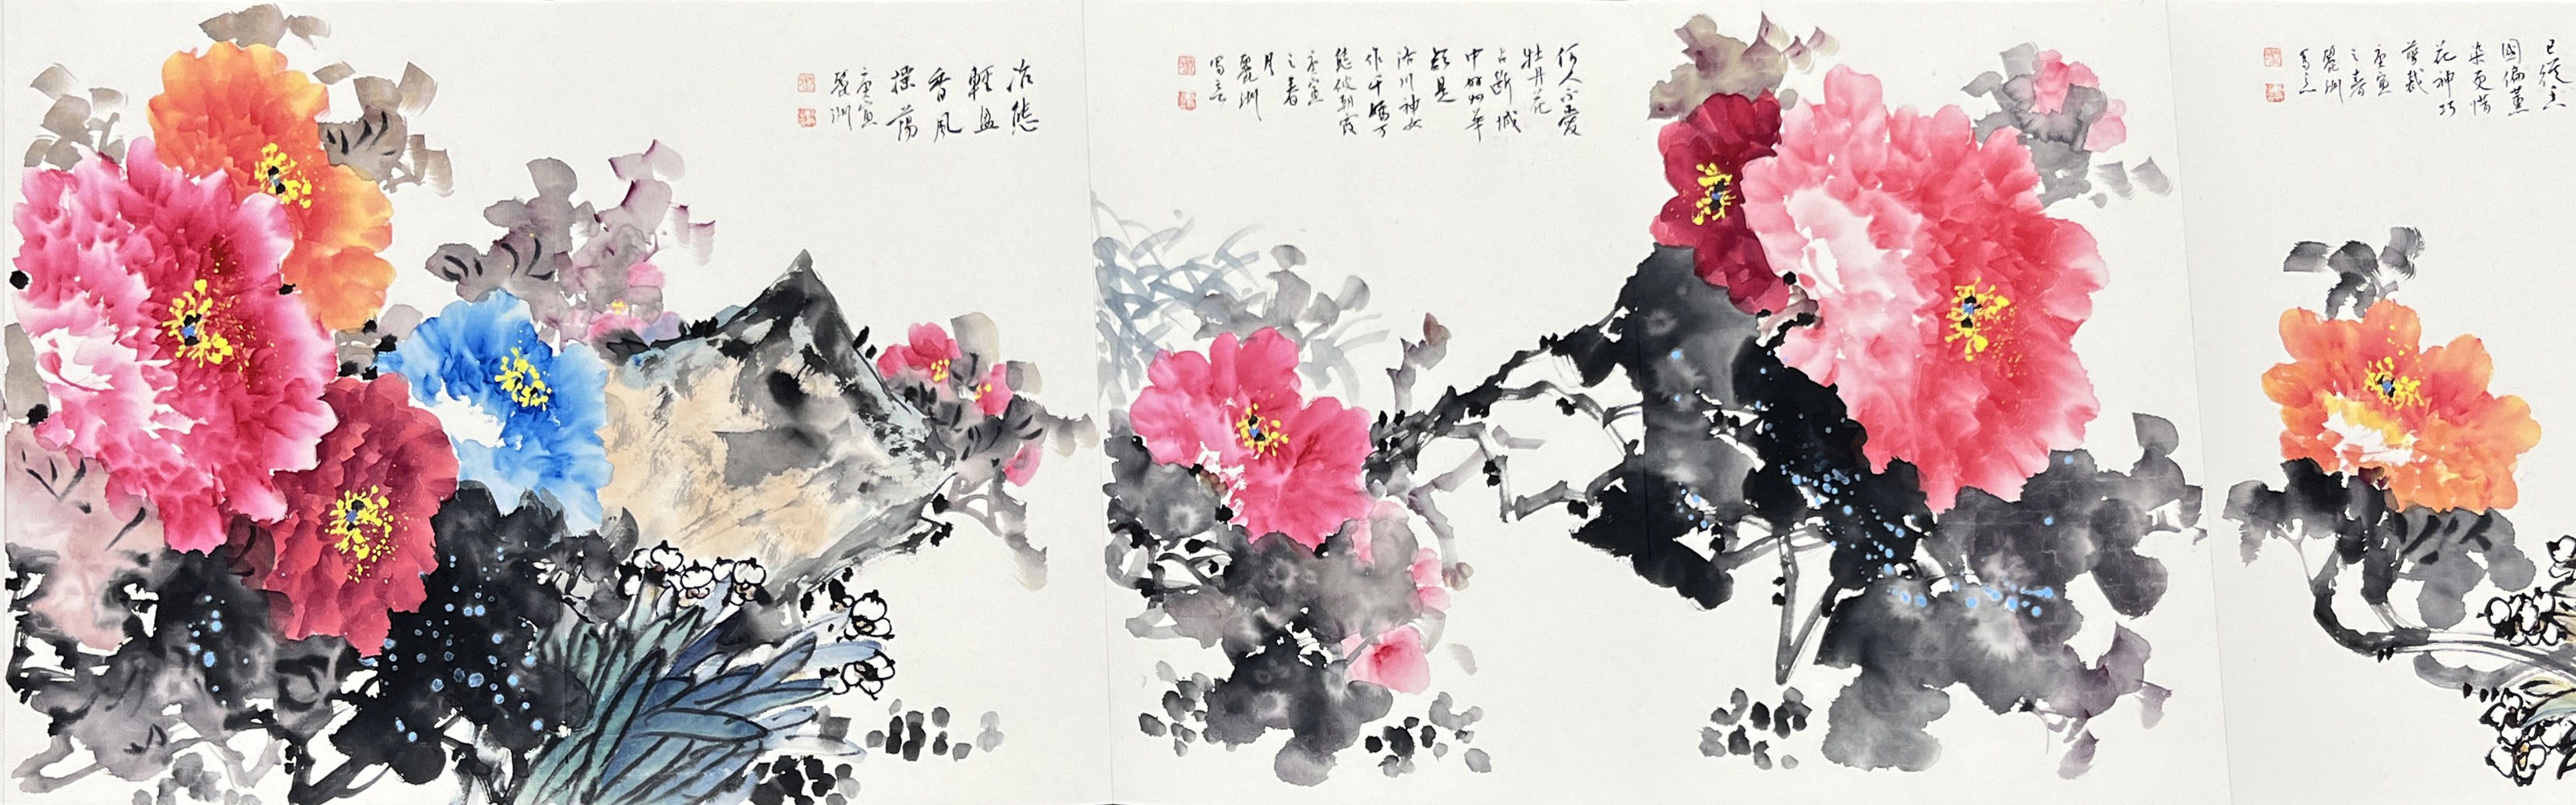 已從
國偏薰
染更惜
花神巧
剪裁
庚寅
之春
麗洲
寫意
何人不愛
牡丹花
占斷城
中好物華
疑是
洛川神女
作千嬌万
態破朝霞
庚寅
之春
月
麗洲
寫意
冶態
輕盈
香風
操蕩
庚寅
麗洲